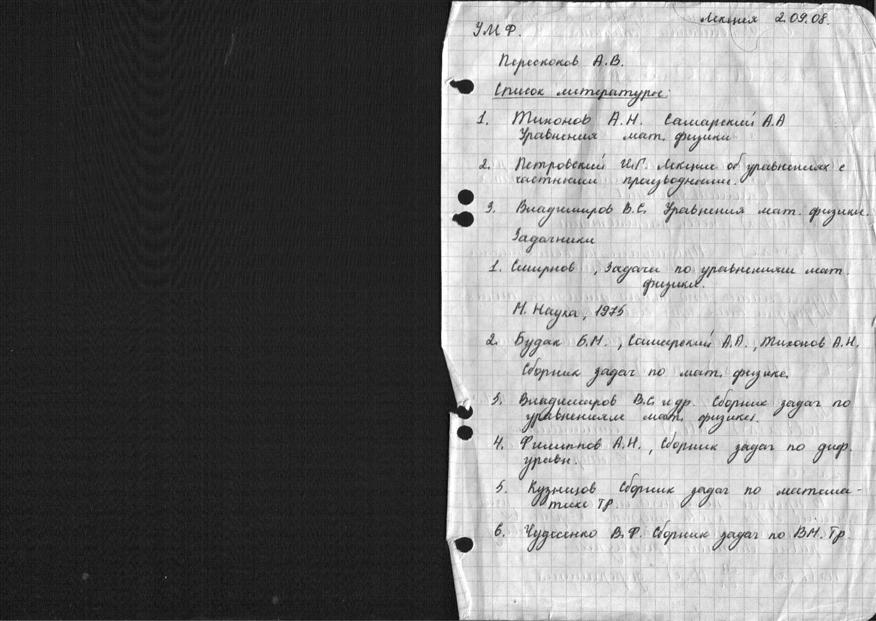 Лекция 2.09.08.
УМФ.
Пересконов А.В.
Список литературы:
1. Тихонов А.Н. Самарский А.А
Уравнения мат. физики
2. Петровский И.Г. Лекции об уравнениях с
частными производными.
3. Владимиров В.С. Уравнения мат. физики.
Задачники
1. Смирнов , Задачи по уравнениям мат.
физики.
М. Наука, 1975
2. Будак Б.М., Самарский А.А., Тихонов А.Н.
Сборник задач по мат. физике.
3. Владимиров В.С. и др. Сборник задач по
уравнениям мат. физики.
4. Филиппов А.Н., Сборник задач по диф.
уравн.
5. Кузнецов Сборник задач по матема-
тике Тр.
6. Чудесенко В.Ф. Сборник задач по ВМ. Тр.